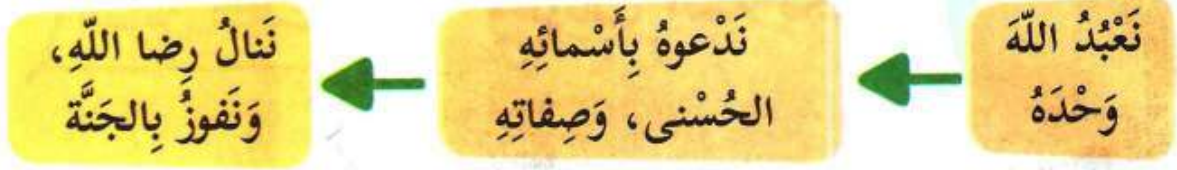 نَعْبُدُ اللّهَ
وَحْدَهُ
نَدْعوهُ بِأَسْمائِهِ
الحُسْنى، وَصِفاتِهِ
نَنالُ رِضا اللّهِ،
وَنَفوزُ بِالجَنَّة